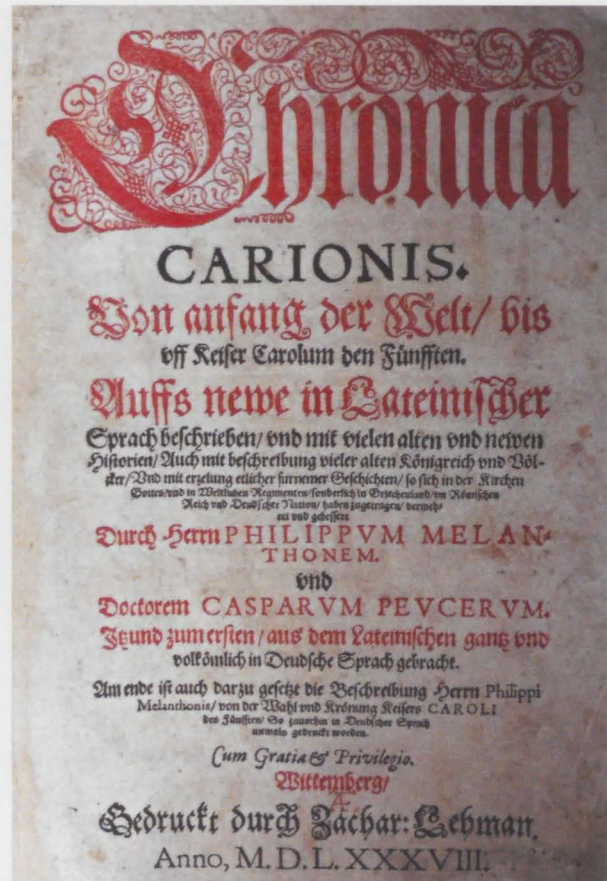 Chronica
CARIONIS.
Von anfang der Welt/ bis
vff Keiser Carolum den Fünfften.
Auffs newe in Lateinischer
Sprach beschrieben/ vnd mit vielen alten vnd newen
Historien/ Auch mit beschreibung vieler alten Königreich vnd Völ-
cker/ Vnd mit erzelung etlicher furnemer Geschichten/ so sich in der Kirchen
Gottes/ vnd in Weltlichen Regimenten/ sonderlich in Griechenland/ im Römischen
Reich vnd Deudscher Nation/ haben zugetragen/ vermeh-
ret vnd gebessert
Durch Herrn PHILIPPVM MELAN-
THONEM.
vnd
Doctorem CASPARVM PEVCERVM.
Itzund zum ersten/ aus dem Lateinischen gantz vnd
volkömlich in Deudsche Sprach gebracht.
Am ende ist auch darzu gesetzt die Beschreibung Herrn Philippi
Melanthonis/ von der Wahl vnd Krönung Keisers CAROLI
des Fünfften/ So zuuorhin in Deudscher Sprach
niemals gedruckt worden.
Cum Gratia & Privilegio.
Wittemberg/
Gedruckt durch Zachar: Lehman.
Anno, M. D. L. XXXVIII.